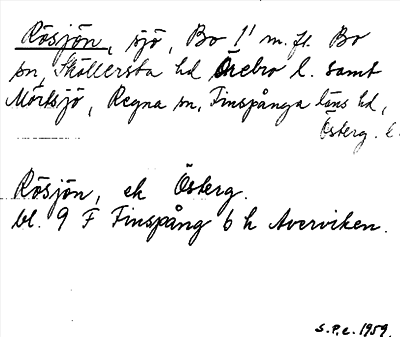 Rösjön, sjö, Bo 1¹ m. fl. Bo
sn, Sköllersta hd Örebro l. samt
Mörtsjö, Regna sn, Finspånga läns hd,
Österg. l.
Rösjön, ek Österg.
bl. 9 F Finspång 6 h Averviken.
S.P.e. 1959.